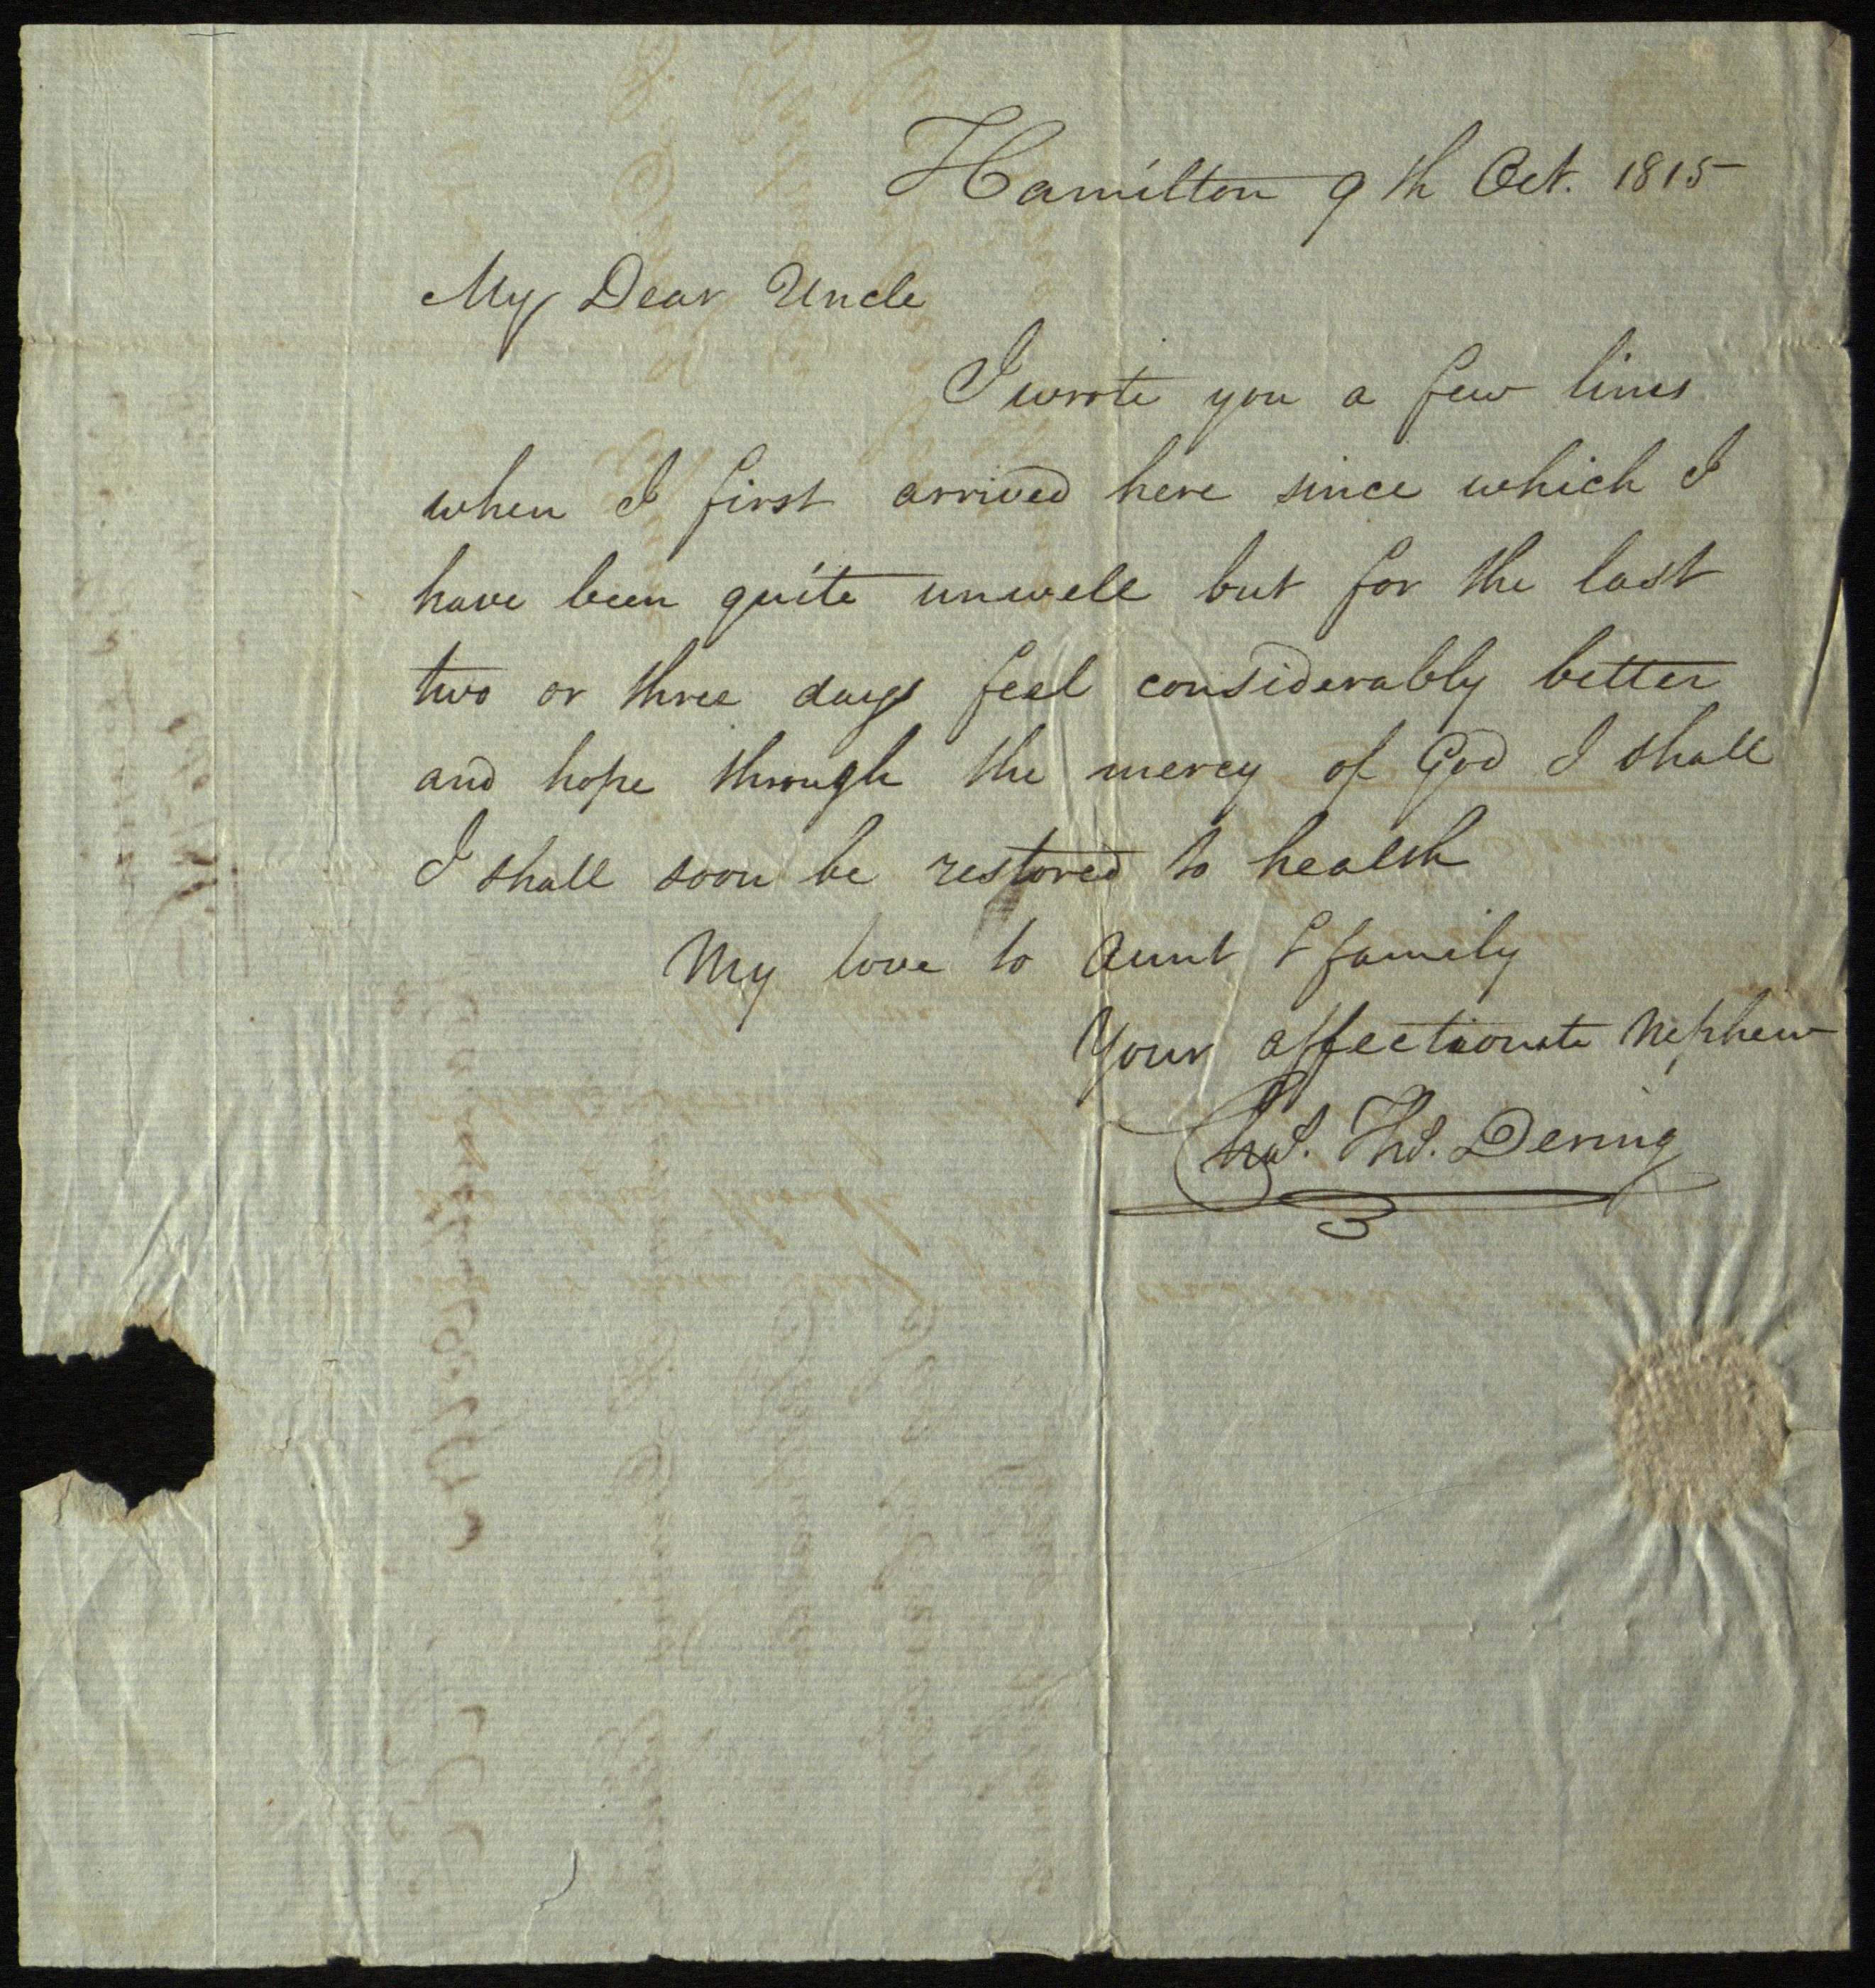 Hamilton 9th Oct. 1815
My Dear Uncle
I wrote you a few lines
when I first arrived here since which I
have been quite unwell but for the last
two or three days feel considerably better
and hope through the mercy of God I shall
I shall soon be restored to health
My love to Aunt & family
Your affectionate Nephew
Chas. Ths. Dering